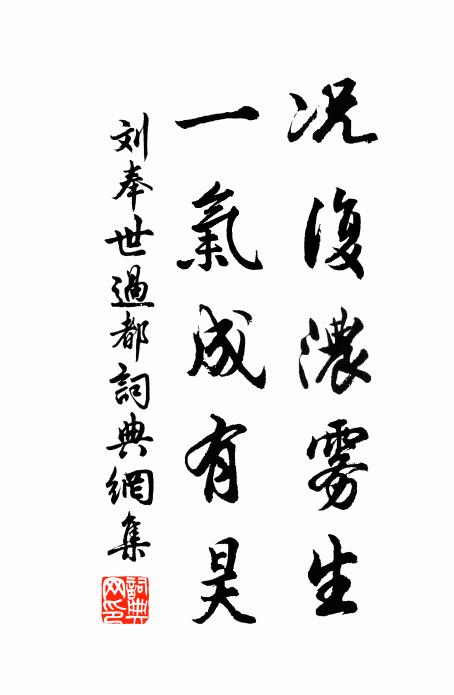 况復濃雾生
一氣成有昊
刘奉世過都詞典網集
詞典网印